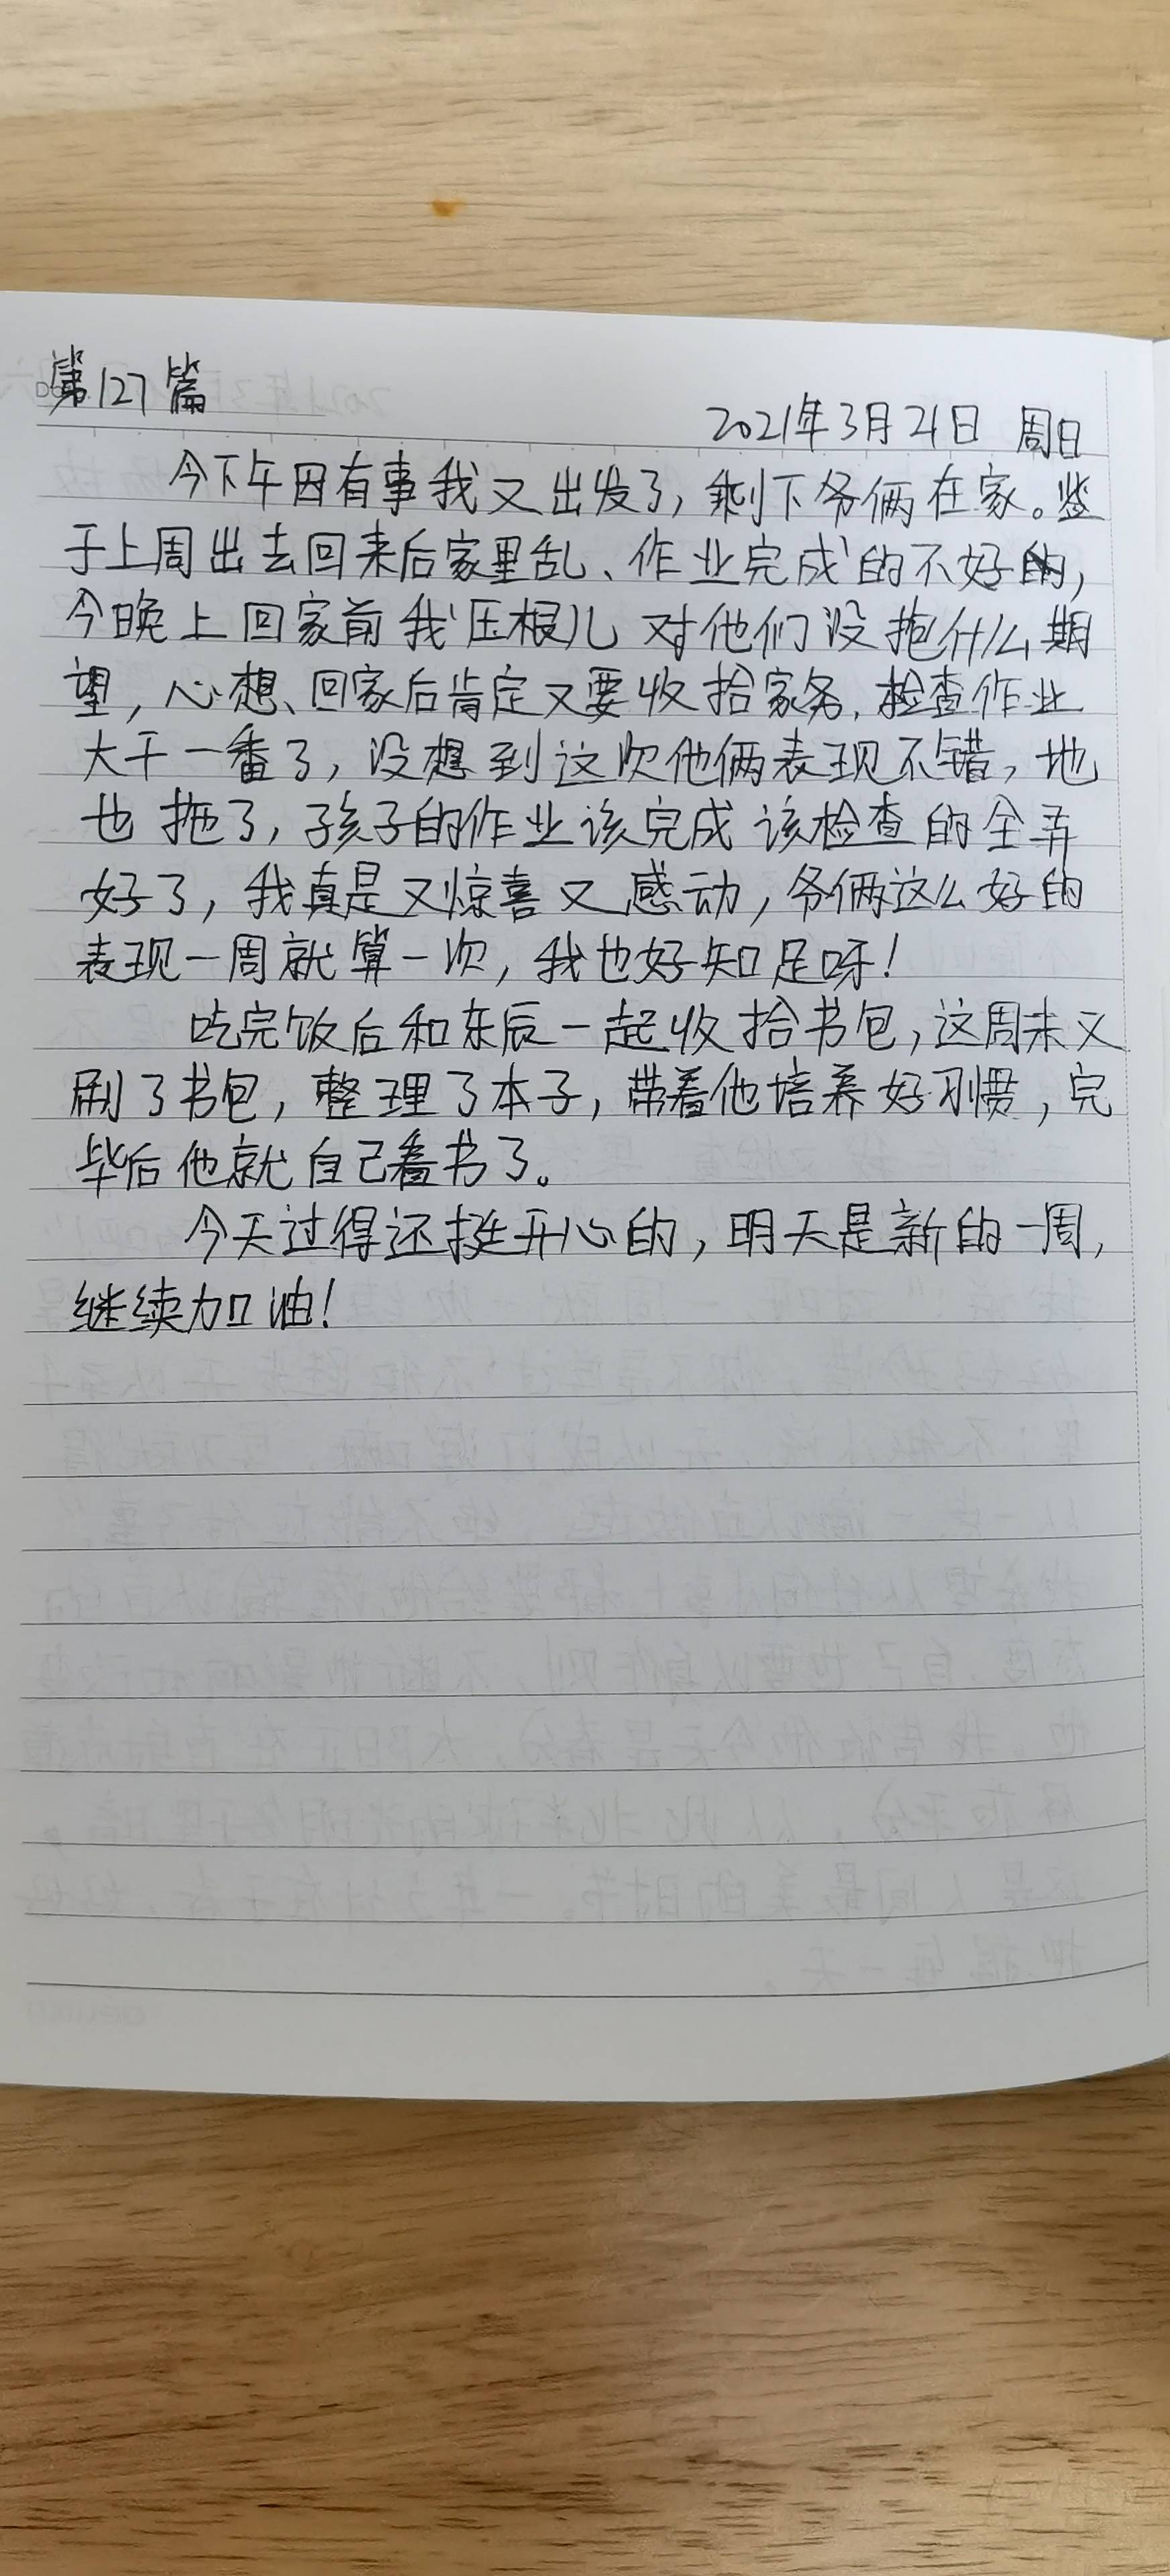 第127篇
2021年3月21日 周日
今下午因有事我又出发了，剩下爷俩在家。鉴
于上周出去回来后家里乱、作业完成的不好，
今晚上回家前我压根儿对他们没抱什么期
望，心想、回家后肯定又要收拾家务，检查作业
大干一番了，没想到这次他俩表现不错，地
也拖了，孩子的作业该完成该检查的全弄
好了，我真是又惊喜又感动，爷俩这么好的
表现一周就算一次，我也好知足呀！
吃完饭后和东辰一起收拾书包，这周末又
刷了书包，整理了本子，带着他培养好习惯，完
毕后他就自己看书了。
今天过得还挺开心的，明天是新的一周，
继续加油！